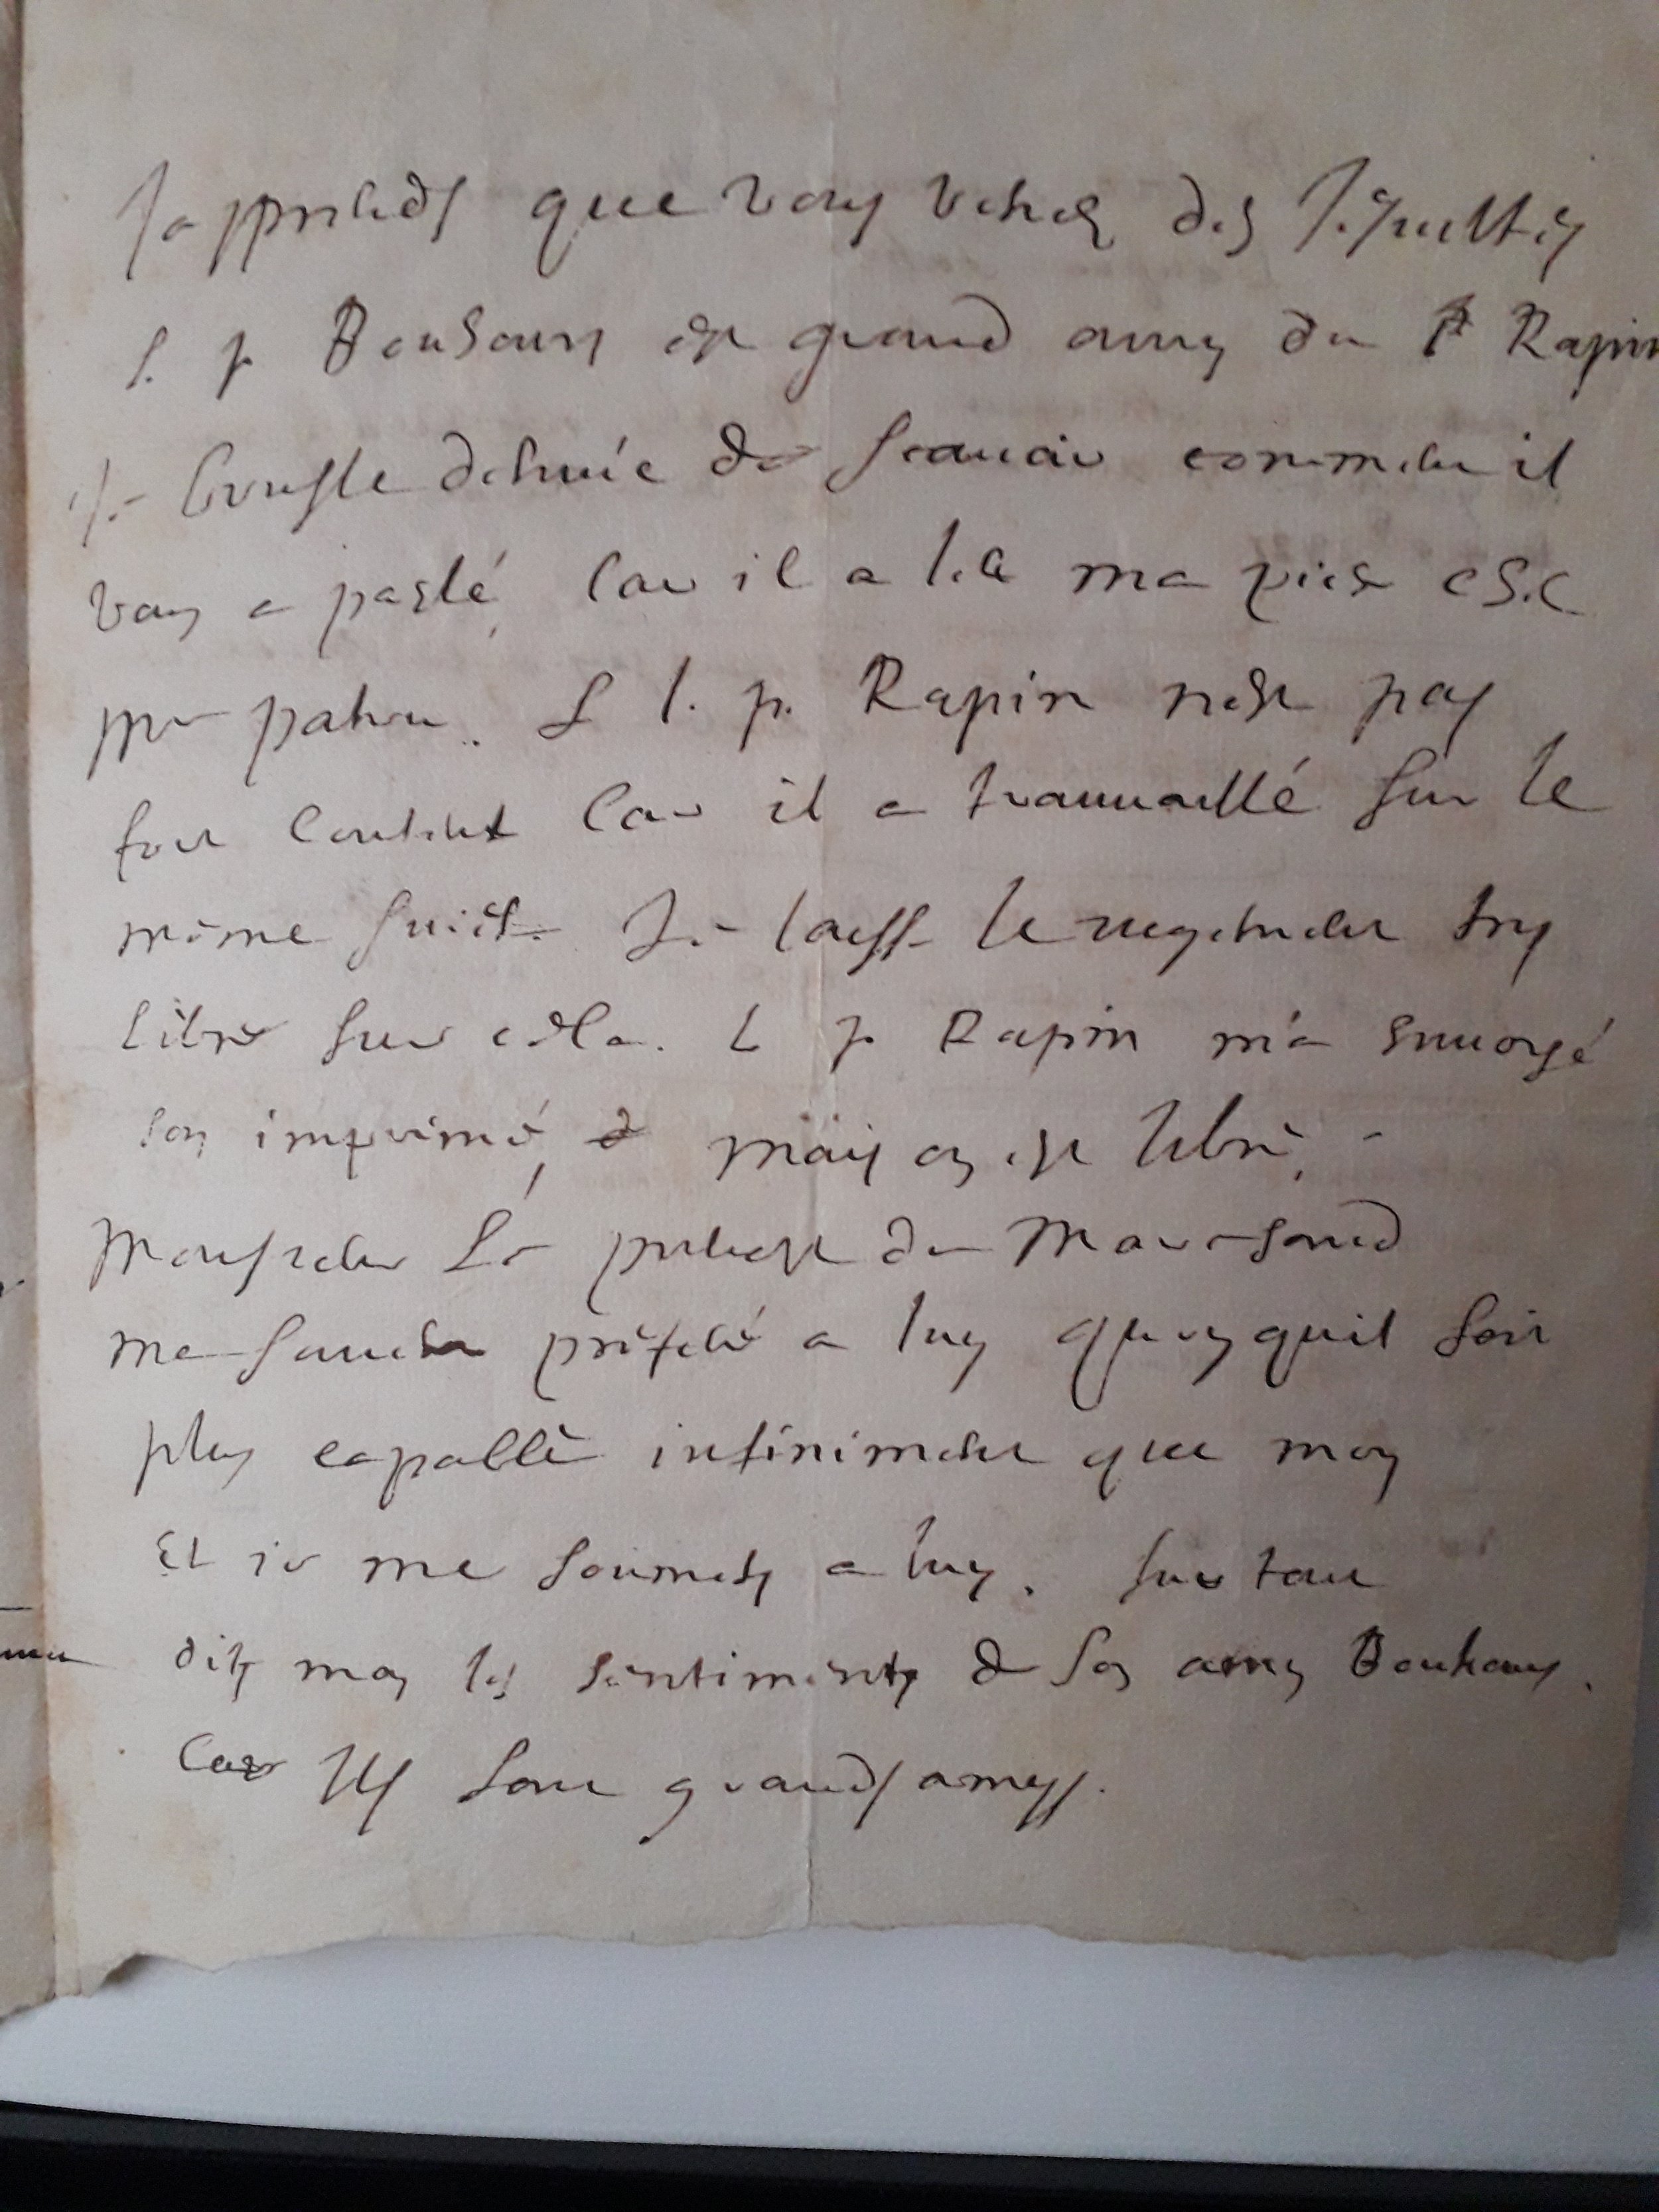 J'apprends que vous venez des Jesuittes
l. p. Bouhours est grand amy du P Rapin
Je brusle denuie de scauoir comment il
vous a parlé, car il a leu ma piece chez
mr patru. & l. p. Rapin nest pas
fort content car il a trauuaillé sur le
même suiet. Je laisse le regarder trez
libre sur cella. L p Rapin m'a enuoyé
son imprimé, mais on est libre,
Monsieur Le prince de Marchand
me sanble préféré a luy quoyquil soit
plus capable infiniment que moy
Et ie me soumets a luy. surtout
dits moy les sentiments de son amy Bouhours.
Car Ils sont grands amys.